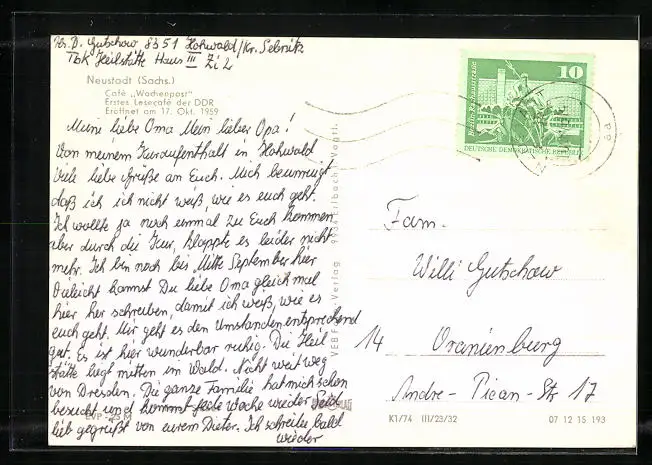 Abs. D. Gutschow 8351 Hohwald/Kr. Sebnitz
Tbk Heilstätte Haus III Zi 2
Neustadt (Sachs.)
Café „Wochenpost"
Erstes Lesecafé der DDR
Eröffnet am 17. Okt. 1959
Meine liebe Oma Mein lieber Opa!
Von meinem Kuraufenthalt in Hohwald
viele liebe Grüße an Euch. Mich beunruigt
daß ich ich nicht weiß, wie es euch geht.
Ich wollte ja noch einmal zu Euch kommen
aber durch die Kur, klappte es leider nicht
mehr. Ich bin noch bis Mitte September hier
Vieleicht kannst Du liebe Oma gleich mal
hier her schreiben, damit ich weiß, wie es
euch geht. Mir geht es den Umstanden entsprechend
gut. Es ist hier wunderbar ruhig. Die Heil
stätte liegt mitten im Wald. Nicht weit weg
von Dresden. Die ganze Familie hat mich schon
besucht und kommt jede Woche wieder Seid
lieb gegrüßt von eurem Dieter. Ich schreibe bald
wieder
EVP
VEB Verlag 9931 Erlbach Vogtl.
10
Berlin-Rathausstraße
DEUTSCHE DEMOKRATISCHE REPUBLIK
Fam.
Willi Gutschow
14 Oranienburg
Andre-Pican-Str 17
K1/74 III/23/32 07 12 15 193